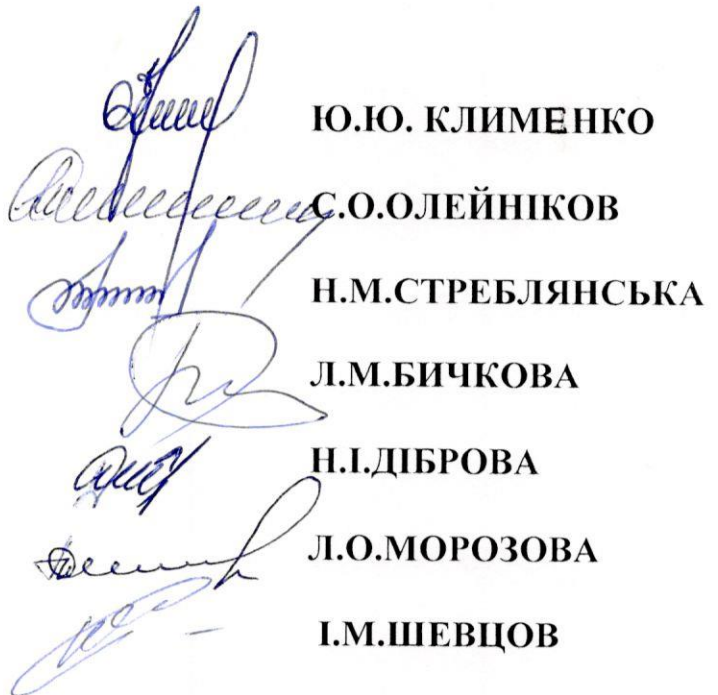 Ю.Ю. КЛИМЕНКО
С.О.ОЛЕЙНІКОВ
Н.М.СТРЕБЛЯНСЬКА
Л.М.БИЧКОВА
Н.І.ДІБРОВА
Л.О.МОРОЗОВА
І.М.ШЕВЦОВ